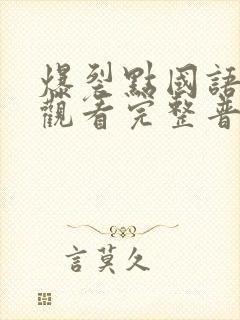 爆裂點國語
觀看完整普
言莫久